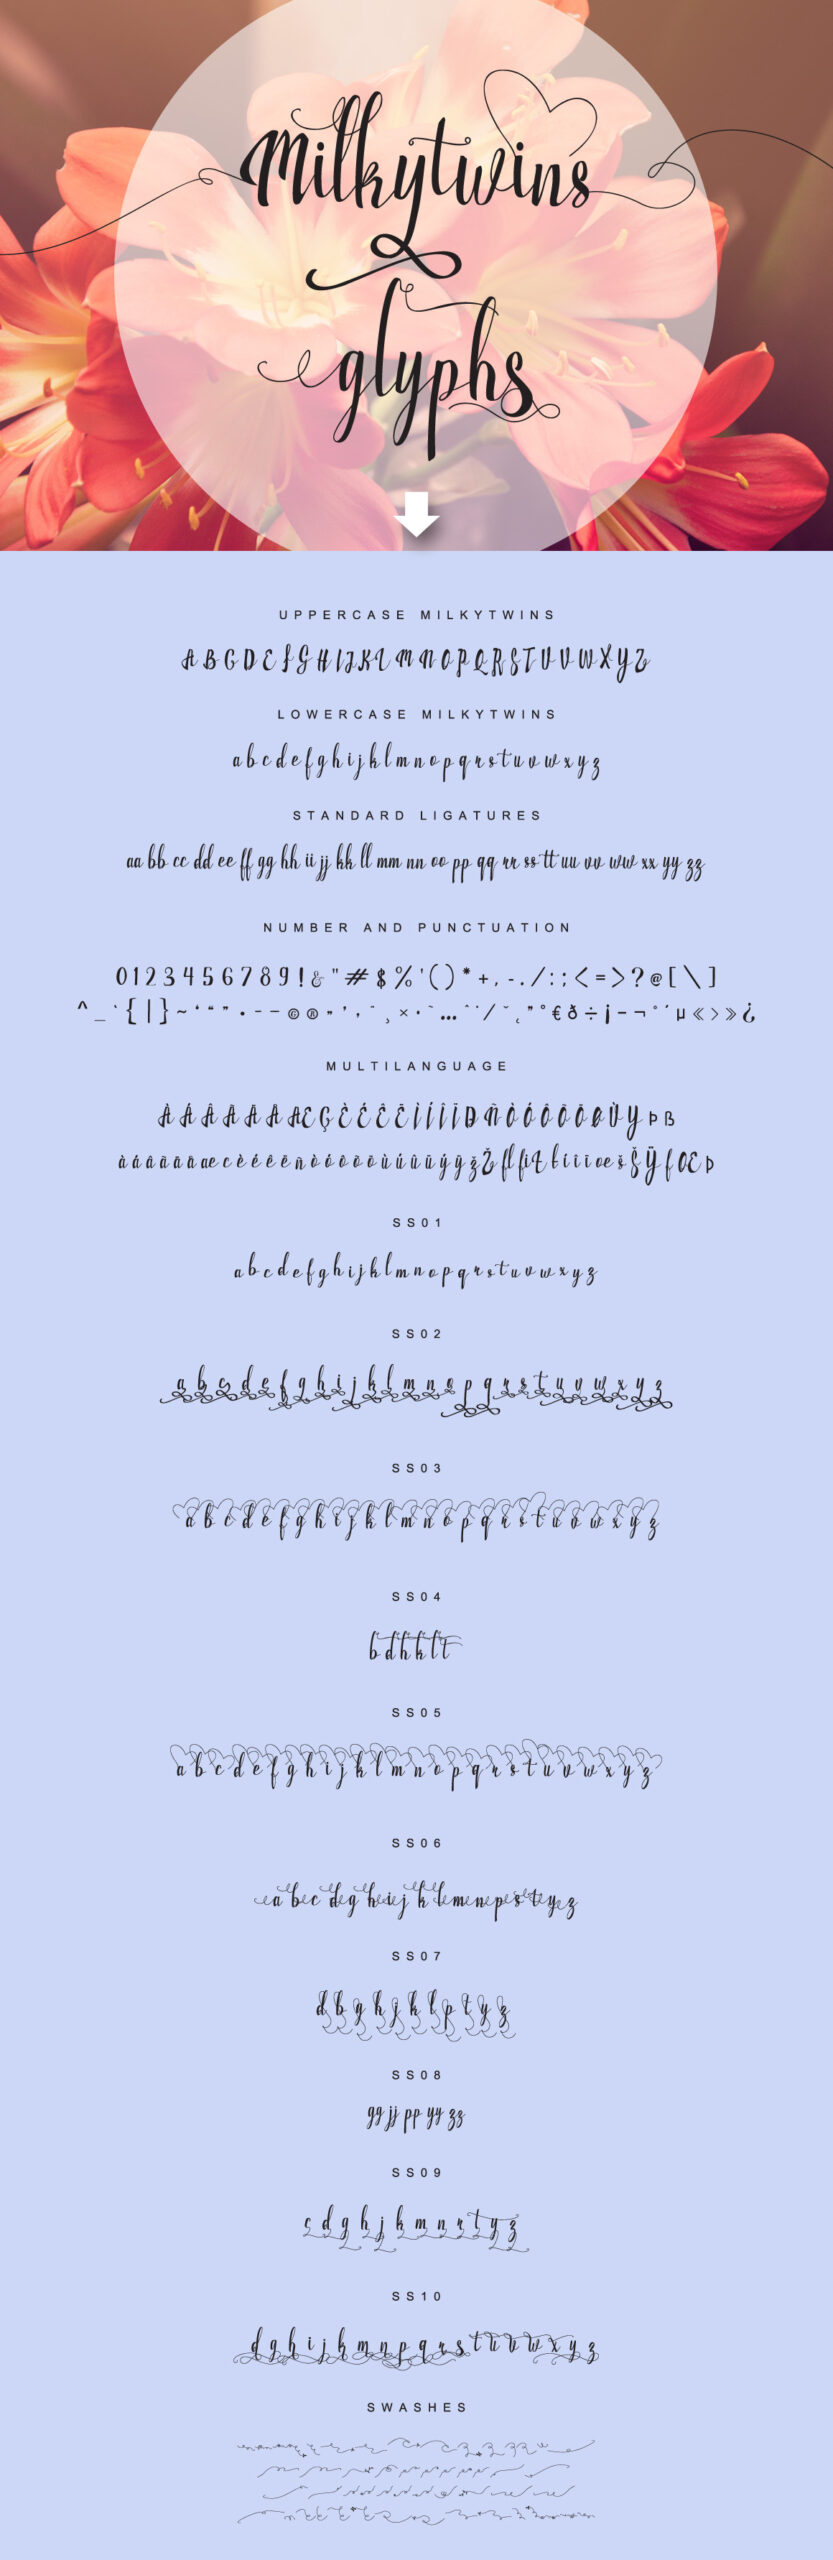 Milkytwins
glyphs
UPPERCASE MILKYTWINS
A B C D E F G H I J K L M N O P Q R S T U V W X Y Z
LOWERCASE MILKYTWINS
a b c d e f g h i j k l m n o p q r s t u v w x y z
STANDARD LIGATURES
aa bb cc dd ee ff gg hh ii jj kk ll mm nn oo pp qq rr ss tt uu vv ww xx yy zz
NUMBER AND PUNCTUATION
0 1 2 3 4 5 6 7 8 9 ! & " # $ % ' ( ) * + , - . / : ; < = > ? @ [ \ ]
^ _ ` { | } ~ ‘ “ ” • – — © ® „ ’ ‚ ¨ ¸ × · ˜ … ˆ ˙ ⁄ ˇ ˛ ” ° € ð ÷ ¡ – ¬ ° ´ µ « › » ¿
MULTILANGUAGE
À Á Â Ã Ä Å Æ Ç È É Ê Ë Ì Í Î Ï Ð Ñ Ò Ó Ô Õ Ö Ø Ù Y Þ ß
SS01
a b c d e f g h i j k l m n o p q r s t u v w x y z
SS02
a b c d e f g h i j k l m n o p q r s t u v w x y z
SS03
a b c d e f g h i j k l m n o p q r s t u v w x y z
SS04
b d h k l t
SS05
a b c d e f g h i j k l m n o p q r s t u v w x y z
SS06
SS07
d b g h j k l p t y z
SS08
gg jj pp yy zz
SS09
c d g h j k m n r t y z
SS10
d g h i j k m n p q r s t u v w x y z
SWASHES